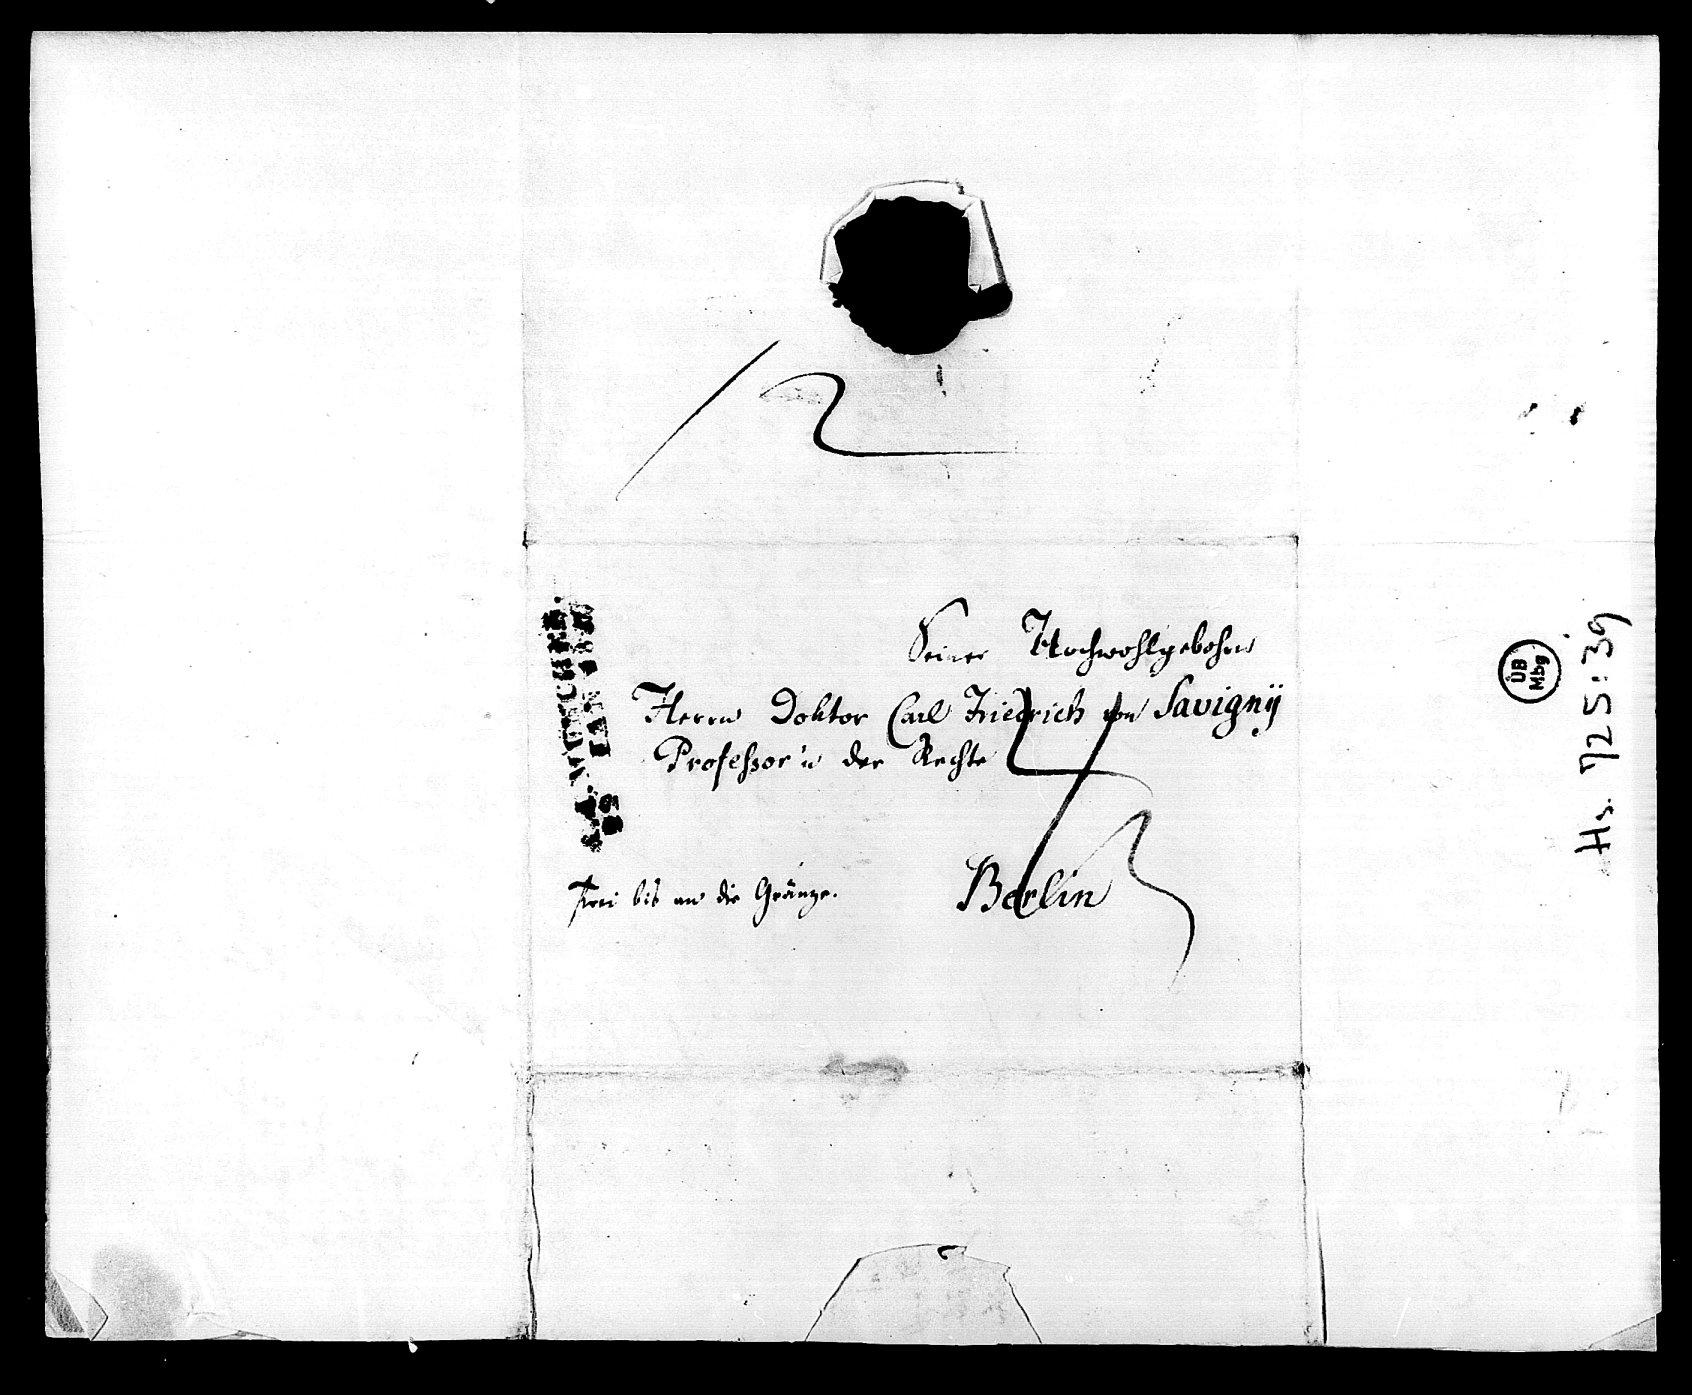 Seiner Hochwohlgebohrn
Herrn Doktor Carl Friedrich von Savignÿ
Professor in der Rechte
Berlin
frei bis an die Gränze.
ÜB
Mbg
Hs. 725:39